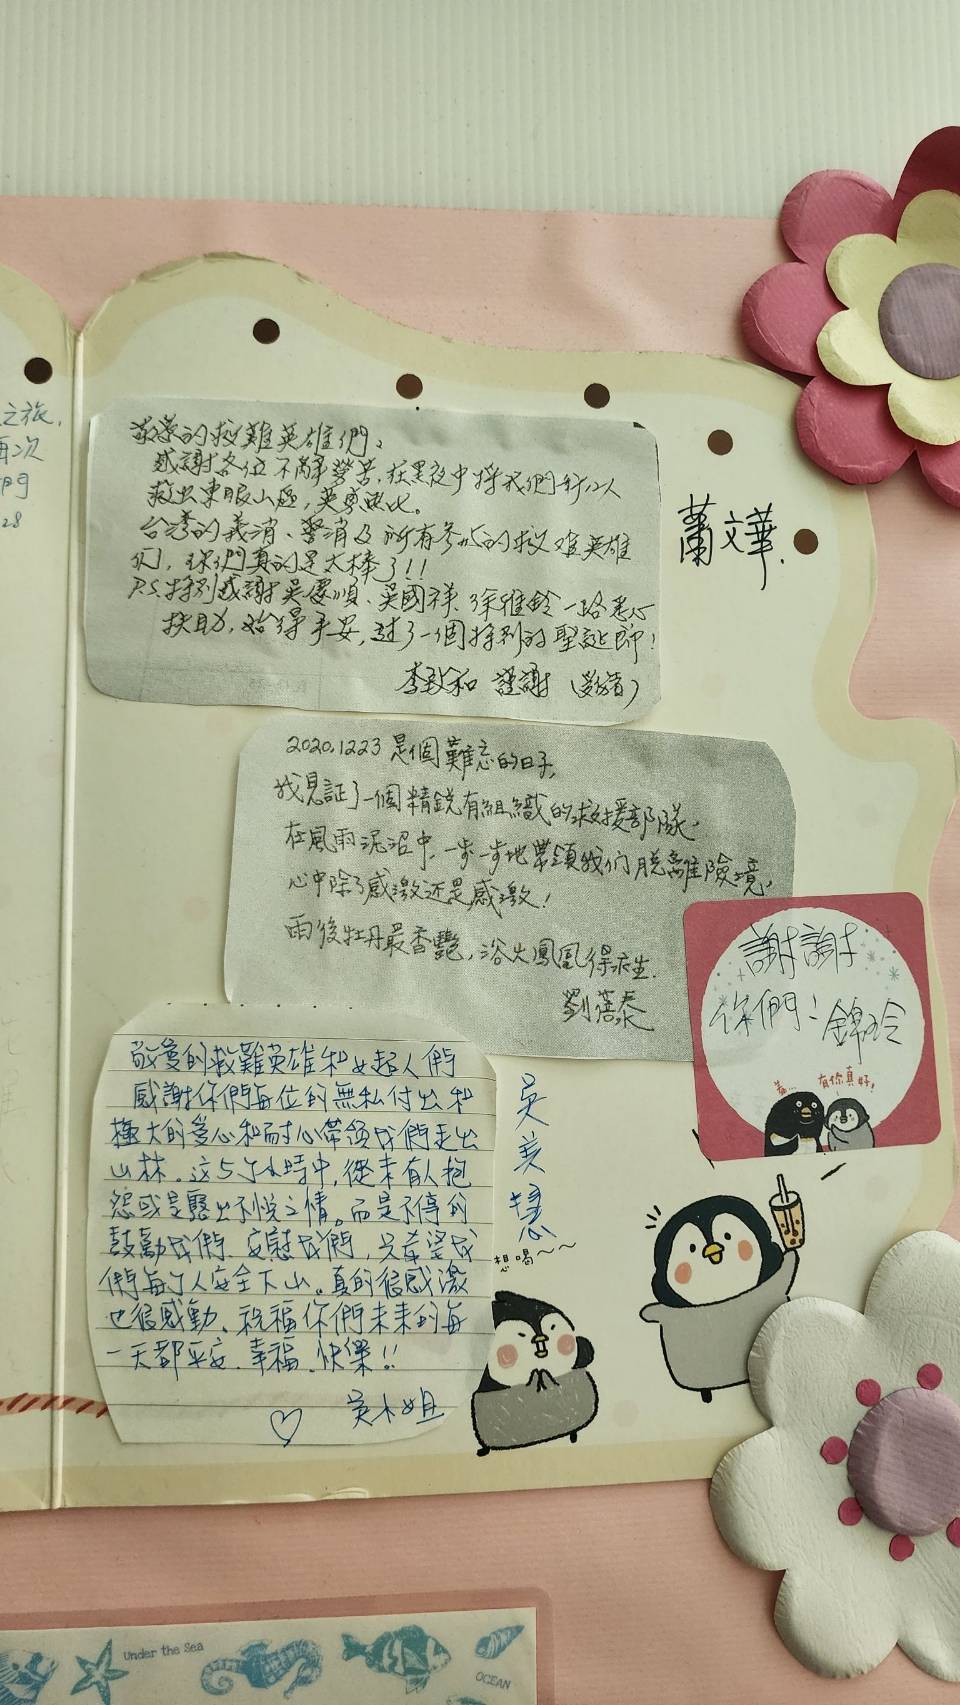 之旅,
再次
們
28
敬愛的救難英雄們:
感謝各位不辭勞苦,在黑夜中將我們
救出東眼山區,
台灣的義消、警消及所有參与的救难英雄
们,你們真的是太棒了!!
P.S.特別感謝吳 順、吳國祥、徐雅鈴一路悉心
扶助,始得平安,过了一個特別的聖誕節!
李致和 謹謝
蕭文華.
2020.1223是個難忘的日子,
我見証了一個精銳有組織的救援部隊,
在風雨泥沼中,一步一步地帶領我们脫離險境,
心中除了感激还是感激!
雨後牡丹最香艷,浴火鳳凰得永生.
劉蓓泰
謝謝
你們:錦玲
有你真好!
敬愛的救難英雄和女超人們
感謝你們每位的無私付出和
極大的愛心和耐心帶领我們走出
山林。这5个小時中,從未有人抱
怨或是露出不悅之情。而是不停的
鼓勵我們、安慰我們,只希望我
們每个人安全下山。真的很感激
也很感動、祝福你們未来的每
一天都平安、幸福、快樂!!
吳小姐
吳美慧
想喝~~
Under the Sea
OCEAN